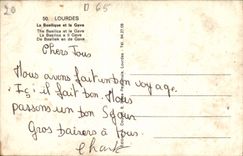 20
D 65
50. LOURDES
La Basilique et le Gave
The Basilica et the Gave
La Basilica e il Gave
De Basiliek en de Gave
Chers Tous
Nous avons fait un bon voyage.
Ici il fait bon. Nous
passons un bon Séjour
Gros baisers à Tous.